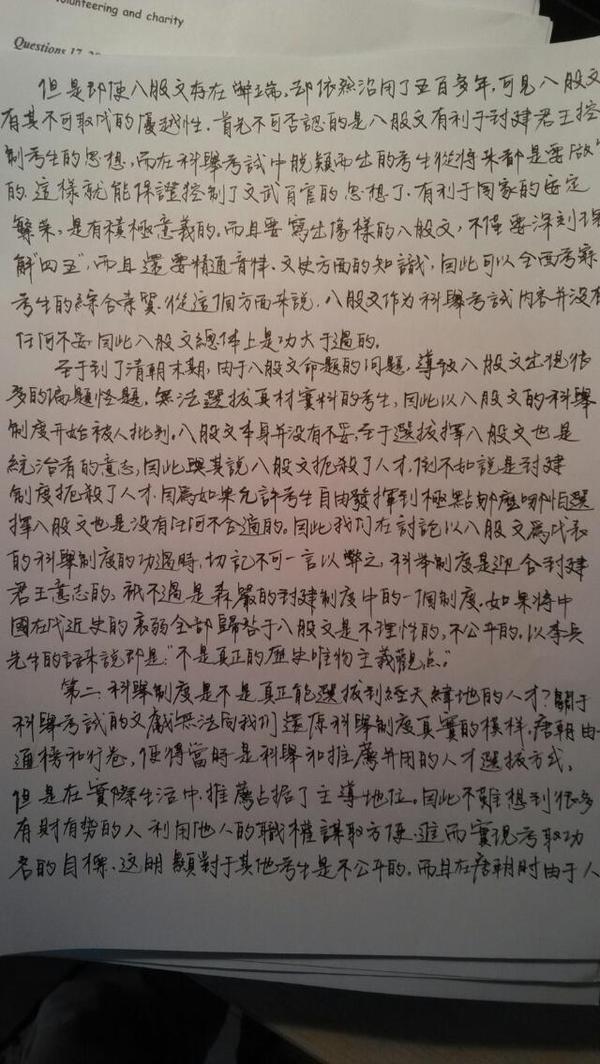 lunteering and charity
Questions 17-20
但是即使八股文存在弊端,却依然沿用了五百多年,可見八股文
有其不可取代的優越性。首先不可否認的是八股文有利于封建君王控
制考生的思想,而在科舉考試中脱穎而出的考生從將來都是要做官
的,這樣就能保證控制了文武百官的思想了,有利于國家的安定
繁荣,是有積極意義的。而且要寫出像樣的八股文,不僅要深刻理
解"四五",而且還要精通音律、文史方面的知識,因此可以全面考察
考生的綜合素質,從這個方面来説,八股文作為科舉考試内容并没有
任何不妥,因此八股文總体上是功大于過的。
至于到了清朝末期,由于八股文命題的问題,導致八股文出现很
多的偏題怪題,無法選拔真材實料的考生,因此以八股文的科舉
制度开始被人批判。八股文本身并没有不妥,至于選拔擇八股文也是
統治者的意志,因此與其說八股文扼殺了人才,倒不如說是封建
制度扼殺了人才,因為如果允許考生自由發揮到極點那麼哪怕選
擇八股文也是没有任何不合適的。因此我们在討論以八股文為代表
的科舉制度的功過時,切記不可一言以弊之,科举制度是迎合封建
君王意志的,祇不過是森嚴的封建制度中的一個制度。如果將中
國在代近史的衰弱全部歸咎于八股文是不理性的,不公平的。以李兵
先生的話来説即是:"不是真正的歷史唯物主義觀点。"
第二,科舉制度是不是真正能選拔到經天緯地的人才?關于
科舉考試的文獻無法向我们還原科舉制度真實的模样,唐朝由
通榜和行卷,使得當時是科舉和推薦并用的人才選拔方式,
但是在實際生活中,推薦占据了主導地位。因此不難想到很多
有財有势的人利用他人的職權謀取方便,進而實現考取功
名的目標,这明顯對于其他考生是不公平的。而且在唐朝时由于人